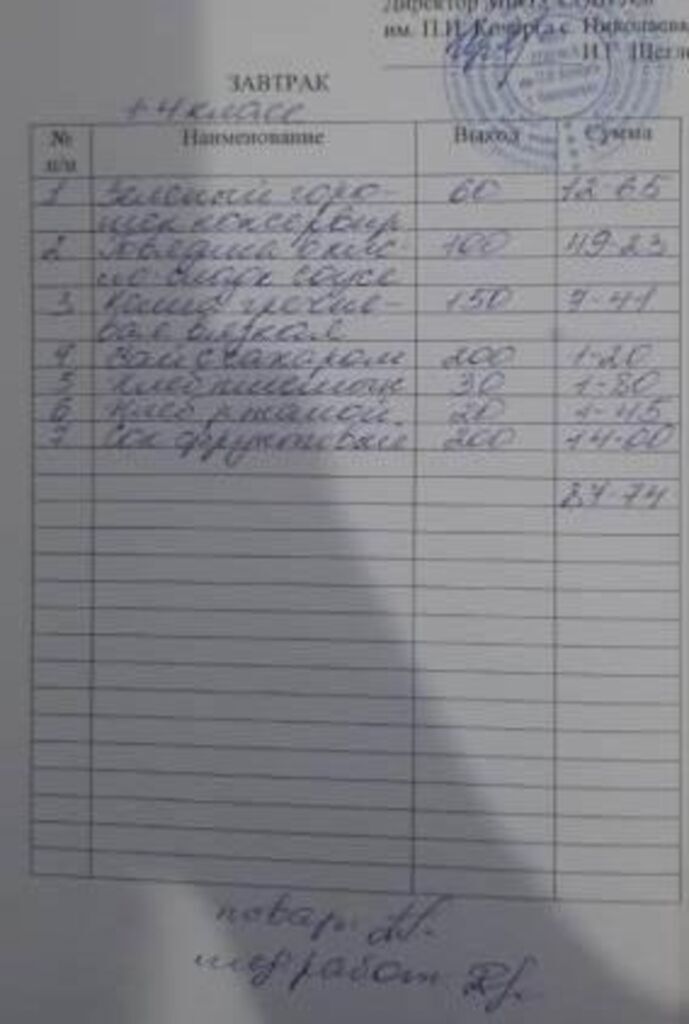 Директор МБОУ СОШ №8
им. П.И. Кочерг с. Николаевка
И.Г. Щегл
ЗАВТРАК
1-4 класс
№ п/п Наименование Выход Сумма
1 Зеленый горо- 60 12-65
шек консервир
2 Говядина в кис- 100 49-23
ло-сладк соусе
3 Каша гречне- 150 7-41
вая вязкая
4 Чай с сахаром 200 1-20
5 Хлеб пшеничн 30 1-80
6 Хлеб ржаной 20 1-45
7 Сок фруктовый 200 14-00
87-74
повар:
мед работ